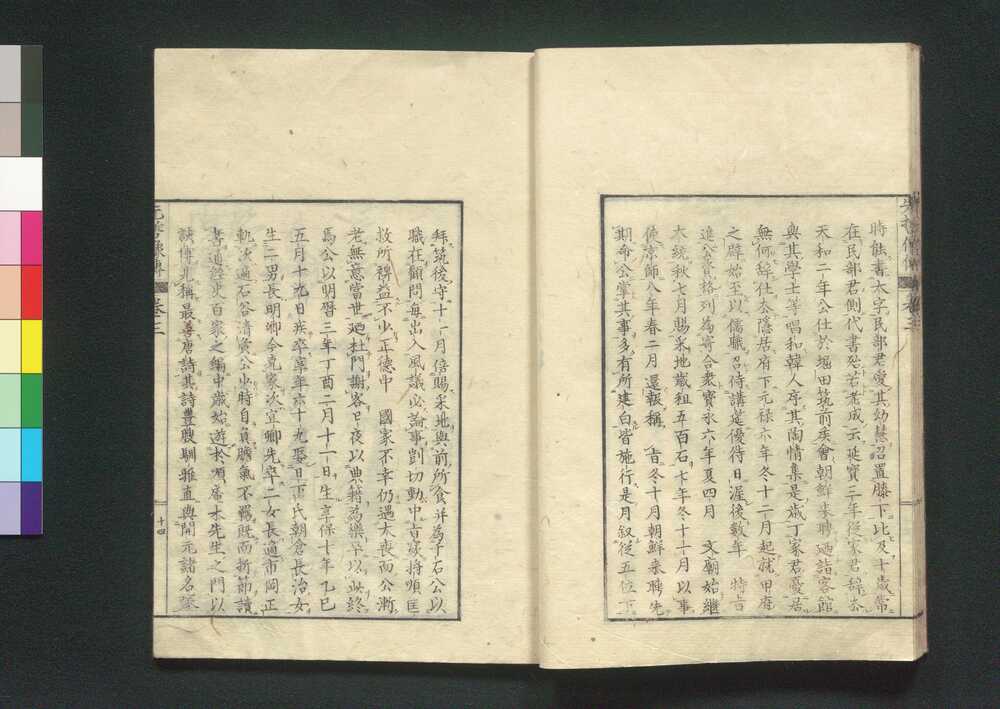 時能書大字民部君愛其幼慧召置膝下比及十歲常
在民部君側代書殆若老成云延寶三年從家君辭去
天和二年公仕於堀田筑前侯會朝鮮來聘廼詣客館
與其學士等唱和韓人序其陶情集是歲丁家君憂居
無何辭仕去隱居府下元祿六年冬十二月起就甲府
之辟始至以儒職召侍講筵優待日渥後數年 特旨
進公資格列為寄合衆寶永六年夏四月 文廟始繼
大統秋七月賜采地歲租五百石七年冬十月以事
使京師八年春二月還報稱 旨冬十月朝鮮來聘先
期希公掌其事多有所建白皆施行是月叙從五位下
拜筑後守十一月倍賜采地與前所食并為千石公以
職在顧問每出入風議必論事剴切動中旨家將順匡
救所裨益不少正德中 國家不幸仍遇大喪而公漸
老無意當世廼杜門謝客日夜以典籍為樂卒以此終
焉公以明曆三年丁酉二月十一日生享保十年乙巳
五月十九日疾卒率年六十九娶日下氏朝倉長治女
生二男長明卿今克家次宜卿先卒二女長適市岡正
軌次適石谷清寅公少時自負膽氣不羈既而折節讀
書通經史百家之編中歲始遊木順庵木先生之門以
詩傳尤稱最善唐詩其詩豐腴馴雅直與開元諸名家
先哲像傳
卷三
十四